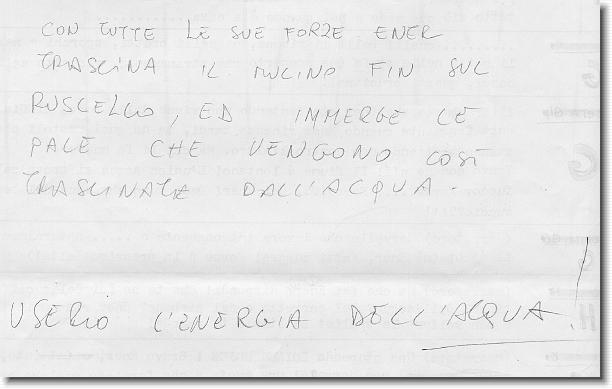 CON TUTTE LE SUE FORZE ENER
TRASCINA IL MULINO FIN SUL
RUSCELLO, ED IMMERGE LE
PALE CHE VENGONO COSÌ
TRASCINATE DALL'ACQUA.
USERÒ L'ENERGIA DELL'ACQUA!